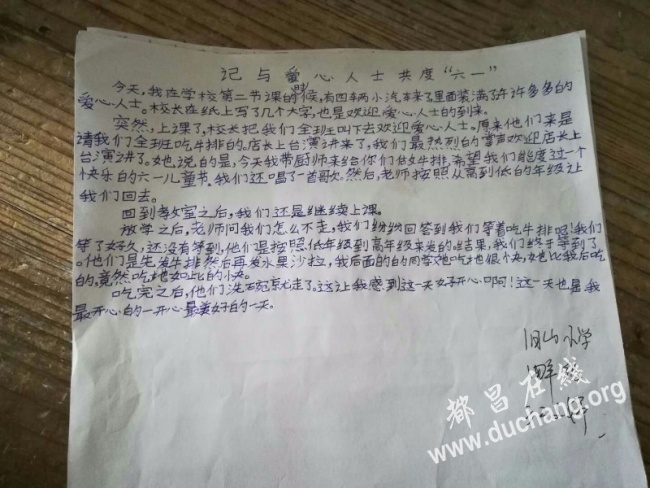 记与爱心人士共度“六一”
今天,我在学校第二节课的时候,有四辆小汽车来了里面装满了许许多多的
爱心人士。校长在纸上写了几个大字,也是欢迎爱心人士的到来。
突然,上课了,校长把我们全班叫下去欢迎爱心人士。原来他们来是
请我们全班吃牛排的。店长上台演讲来了,我们最热烈的掌声欢迎店长上
台演讲了。她说的是,今天我带厨师来给你们做牛排,希望我们能度过一个
快乐的六一儿童节。我们还唱了一首歌。然后,老师按照从高到低的年级让
我们回去。
回到教室之后,我们还是继续上课。
放学之后,老师问我们怎么不走,我们纷纷回答到我们等着吃牛排呢!我们
等了好久,还没有等到,他们是按照低年级到高年级来发的。结果,我们终于等到了
。他们是先发牛排然后再发水果沙拉,我后面的的同学她吃地很快,她比我后吃
的,竟然吃地如此的快。
吃完之后,他们洗碗就走了。这让我感到这一天好开心啊!这一天也是我
最开心的一开心最美好的一天。
旧山小学
都昌在线
www.duchang.org